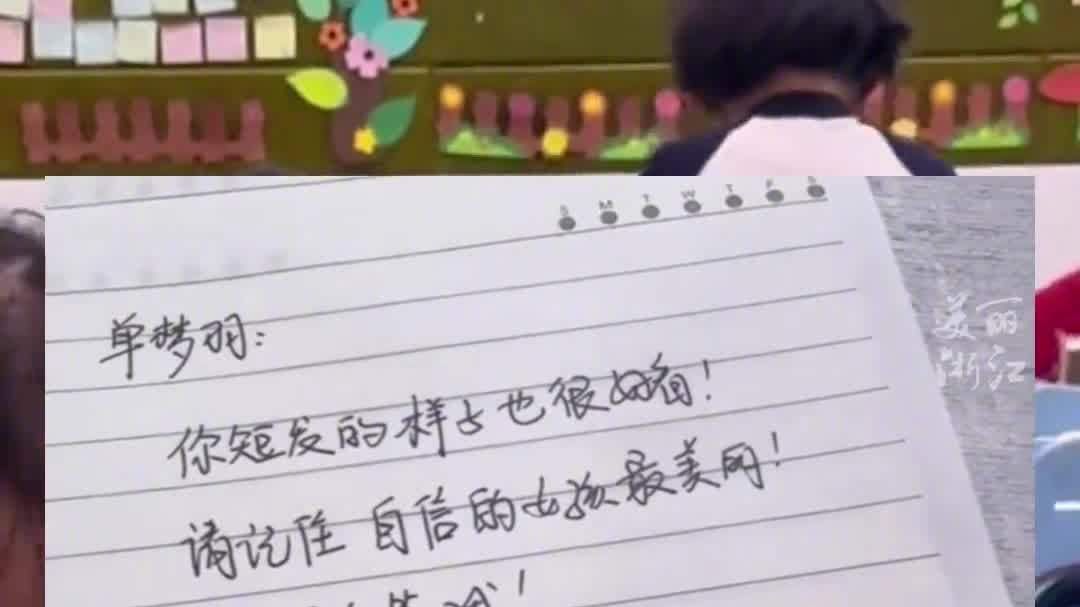 S M T W T F S
单梦羽:
你短发的样子也很好看!
请记住 自信的女孩最美丽!
美丽
浙江